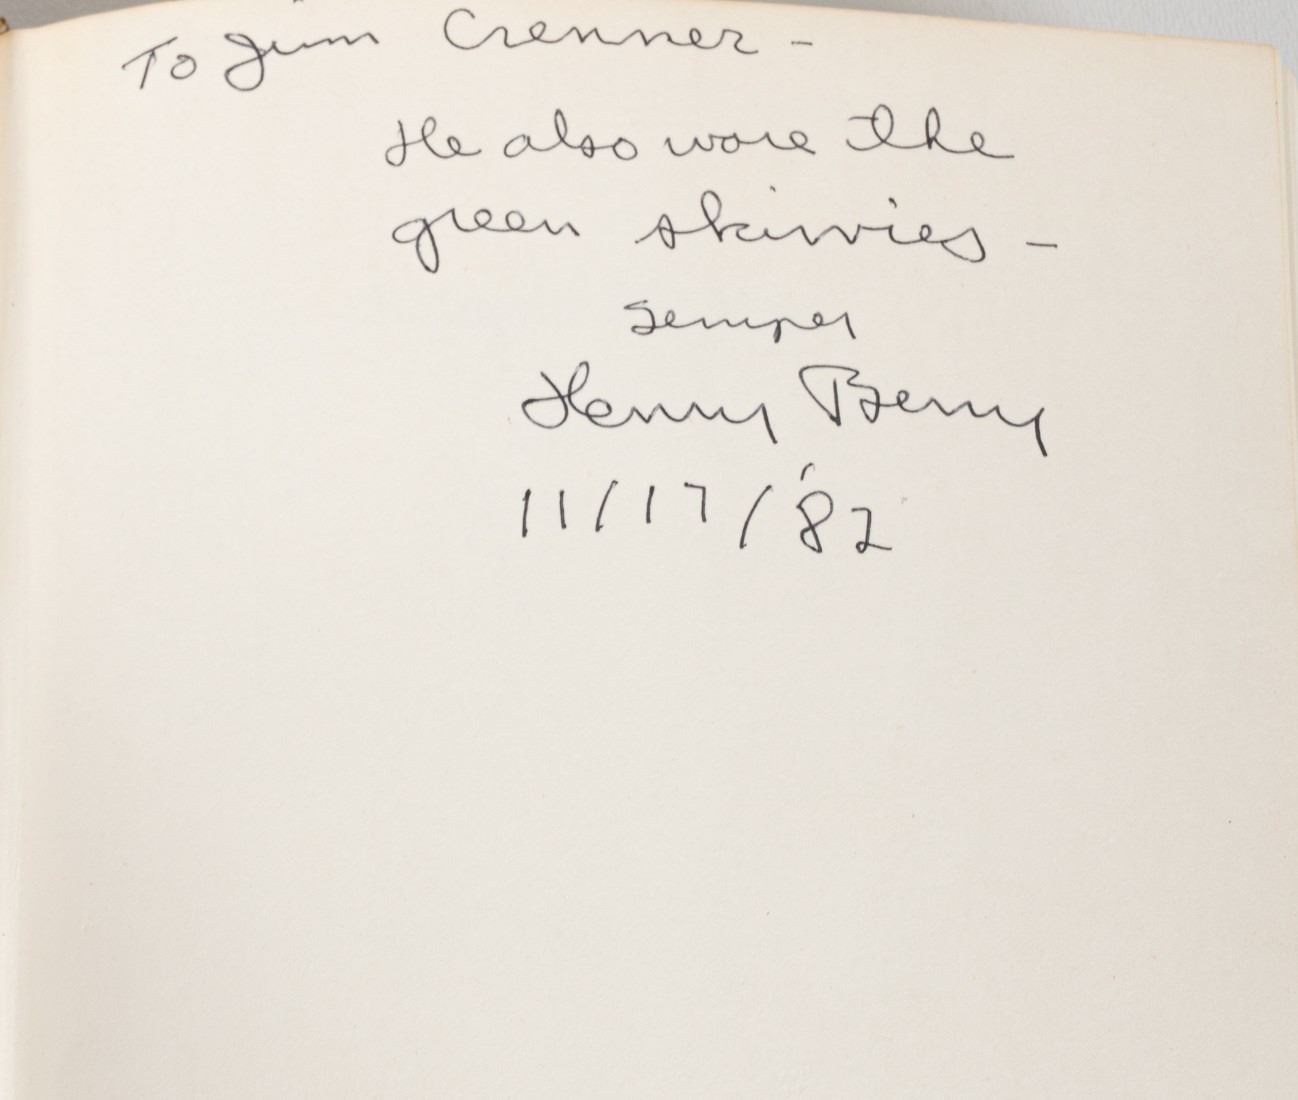 To Jim Crenner -
He also wore the
green skivvies -
Semper
Henry Berry
11/17/'82